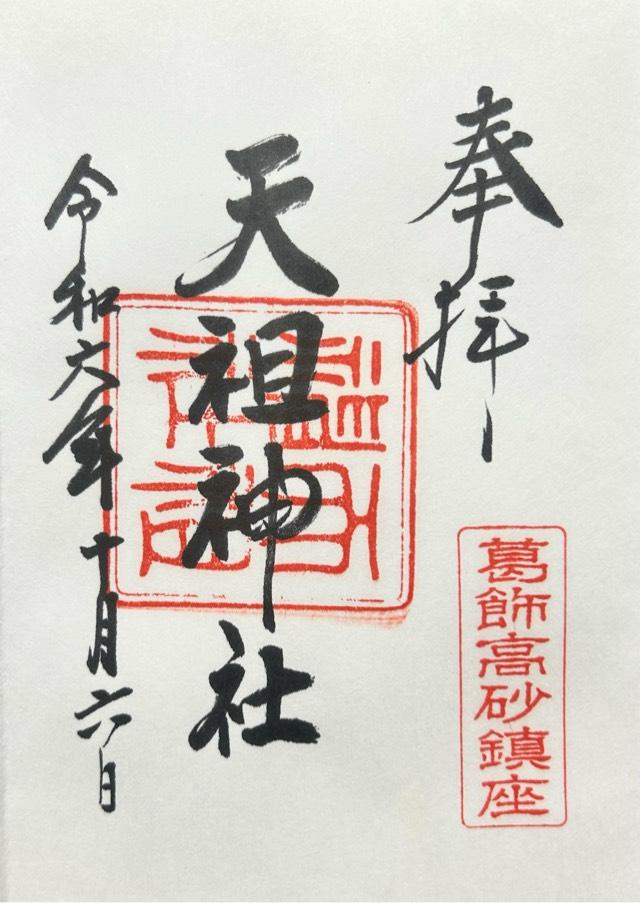 奉拝
葛飾高砂鎮座
天祖神社
令和六年十月六日